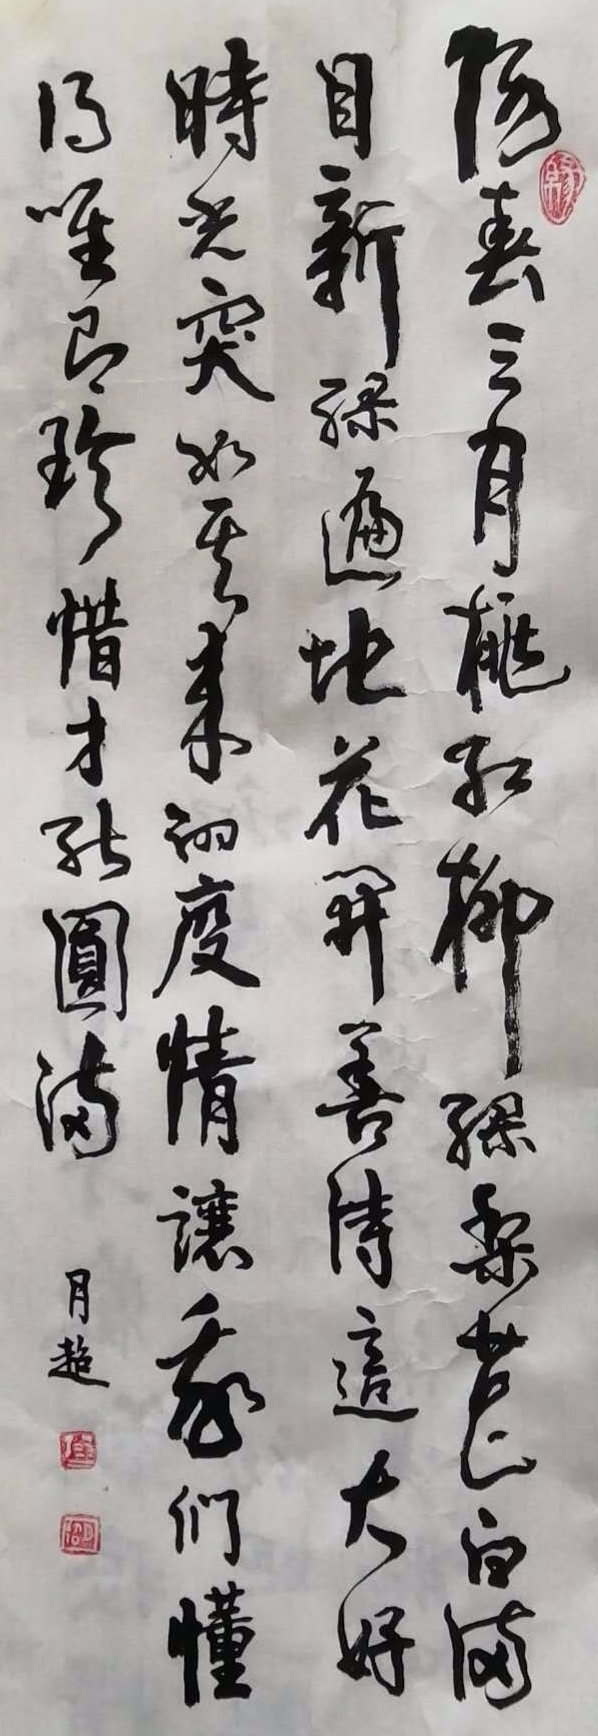 陽春三月桃紅柳綠梨花白滿
目新綠遍地花開善待這大好
時光突如其来的疫情讓我們懂
得唯有珍惜才能圓滿
月超